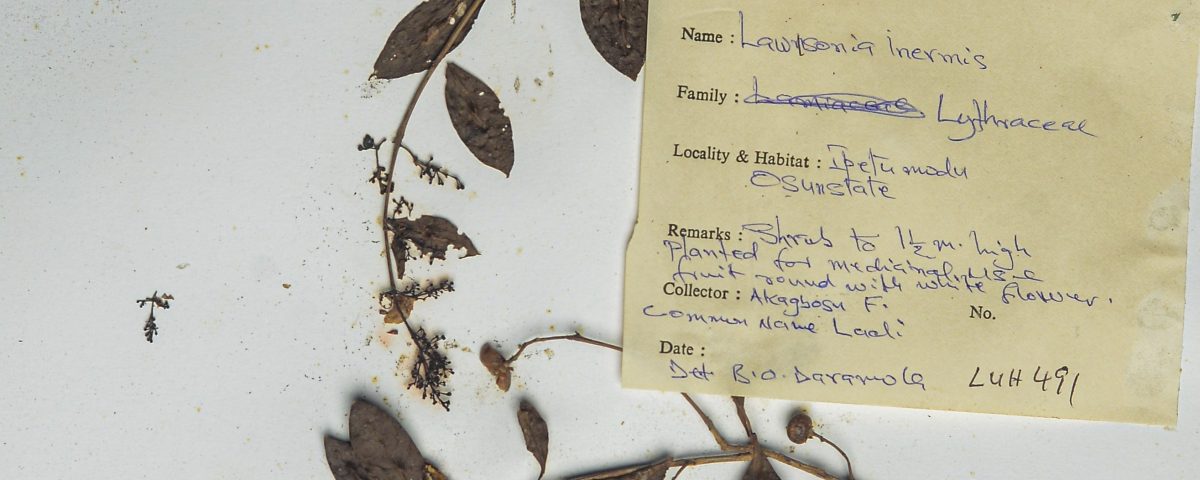 Name : Lawsonia inermis
Family : Lamiaceae Lythraceae
Locality & Habitat : Ipetumodu
Osunstate
Remarks : Shrub to 1½ m. high
Planted for medicinal use
fruit round with white flower.
Collector : Akagbosu F. No.
Common Name Laali
Date :
Det B.O. Daramola LUH 491